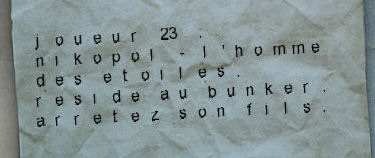 joueur 23 :
nikopol - l'homme
des etoiles.
reside au bunker.
arretez son fils.